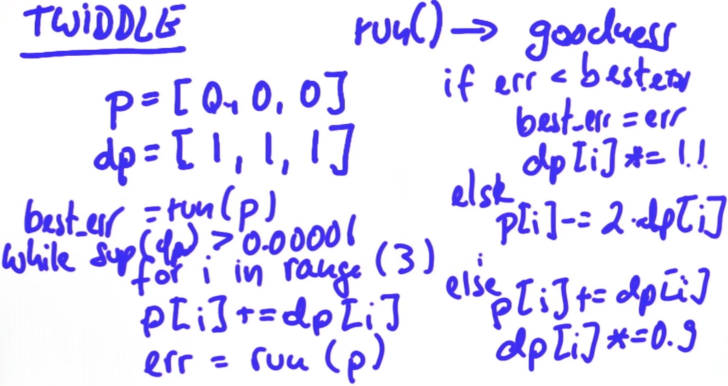 TWIDDLE
p = [0, 0, 0]
dp = [1, 1, 1]
best_err = run(p)
while sup(dp) > 0.00001
for i in range (3)
p[i] += dp[i]
err = run (p)
run() → goodness
if err < best_err
best_err = err
dp[i] *= 1.1
else
p[i] -= 2·dp[i]
else
p[i] += dp[i]
dp[i] *= 0.9